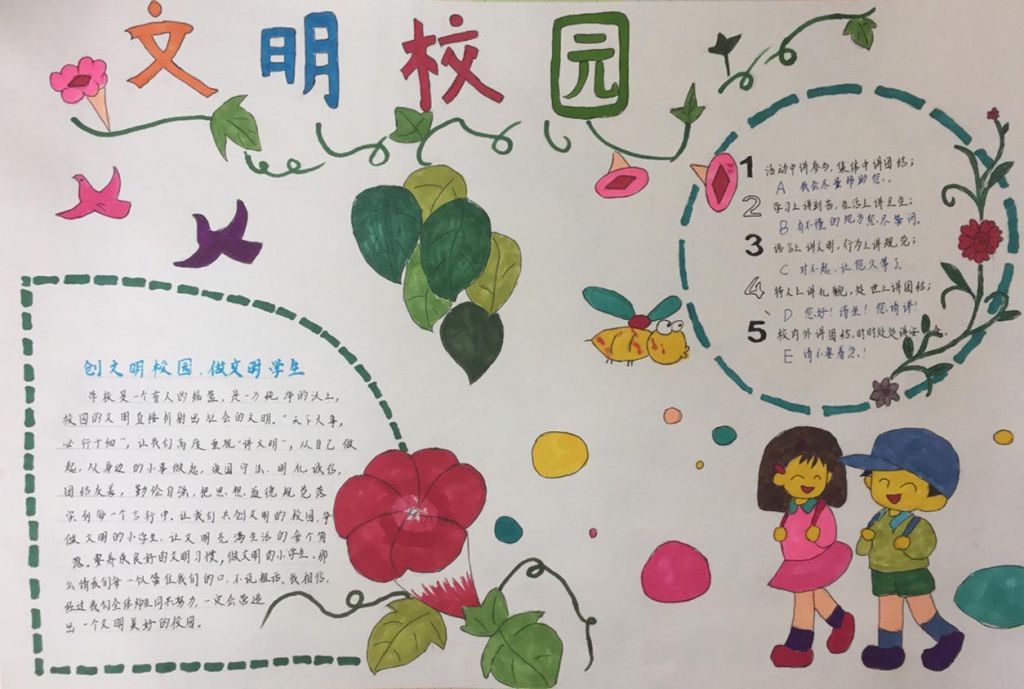 文明校园
创文明校园，做文明学生
学校是一个育人的摇篮，是一方纯净的沃土，
校园的文明直接折射出社会的文明。"天下大事，
必行于细"，让我们高度重视"讲文明"，从自己做
起，从身边的小事做起，爱国守法，明礼诚信，
团结友善，勤俭自强，把思想道德规范落
实到每一个言行中，让我们共创文明的校园，争
做文明的小学生，让文明充满生活的每个角
落，要养成良好的文明习惯，做文明的小学生，那
么请我们每一位管住我们的口，不说粗话。我相信，
经过我们全体师生同共努力，一定会营造
出一个文明美好的校园。
1 活动中讲参与，集体中讲团结；
A 我会尽量帮助您。
2 学习上讲刻苦，生活上讲卫生；
B 有不懂的地方您尽管问。
3 语言上讲文明，行为上讲规范；
C 对不起，让您久等了
4 待人上讲礼貌，处世上讲团结；
D 您好！请坐！您请讲！
5 校内外讲团结，时时处处讲安
E 请不要着急！